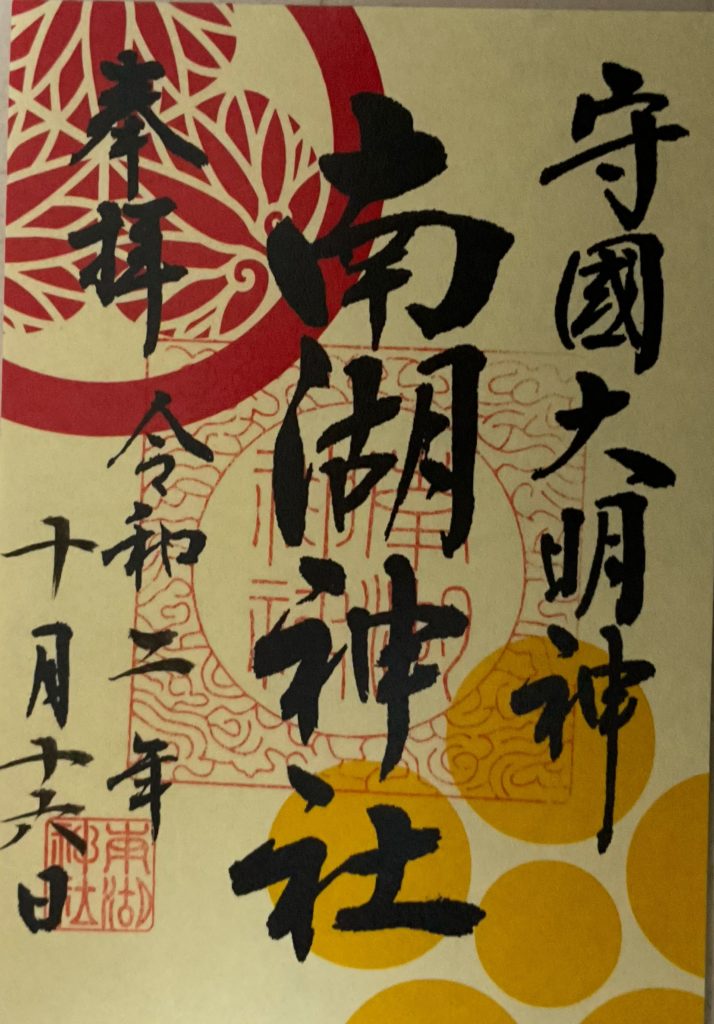 守國大明神
南湖神社
奉拝
令和二年
十月十六日
南湖神社